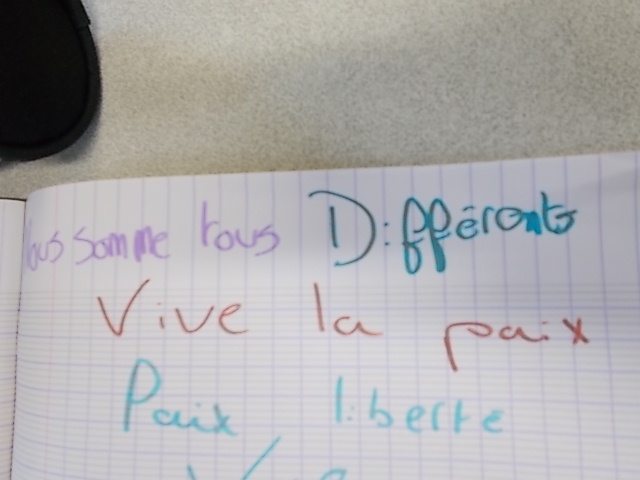 ous somme tous Différents
Vive la paix
Paix liberte